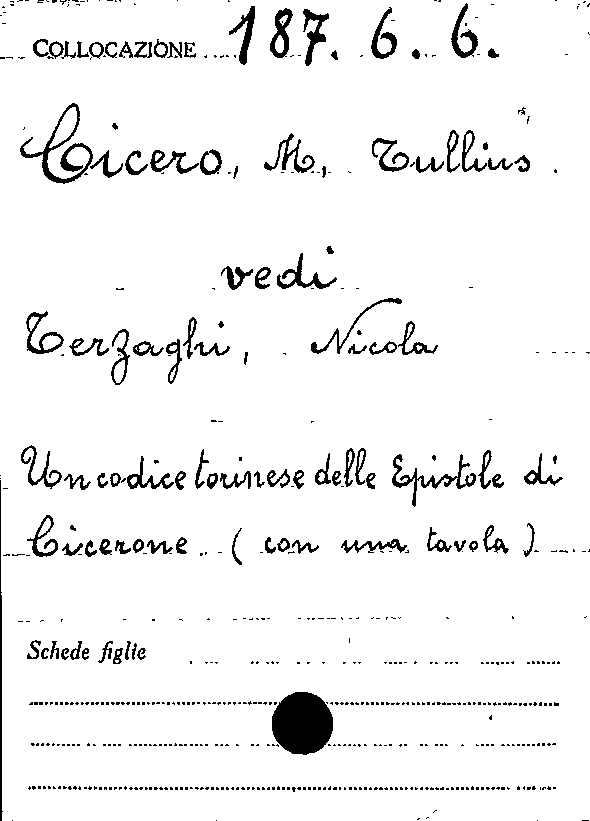 COLLOCAZIONE 187. 6. 6.
Cicero, M, Tullius.
vedi
Terzaghi, Nicola
Un codice torinese delle Epistole di
Cicerone (con una tavola)
Schede figlie